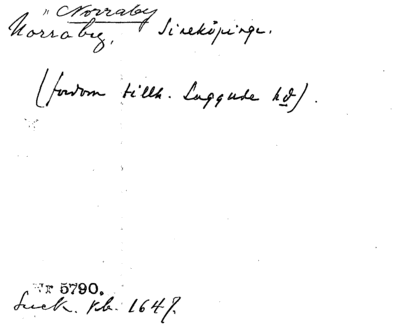 " Norraby
Norraby, Sireköpinge.
(fordom tillh. Luggude hd).
Nr 5790.
Luck. kb. 1647.